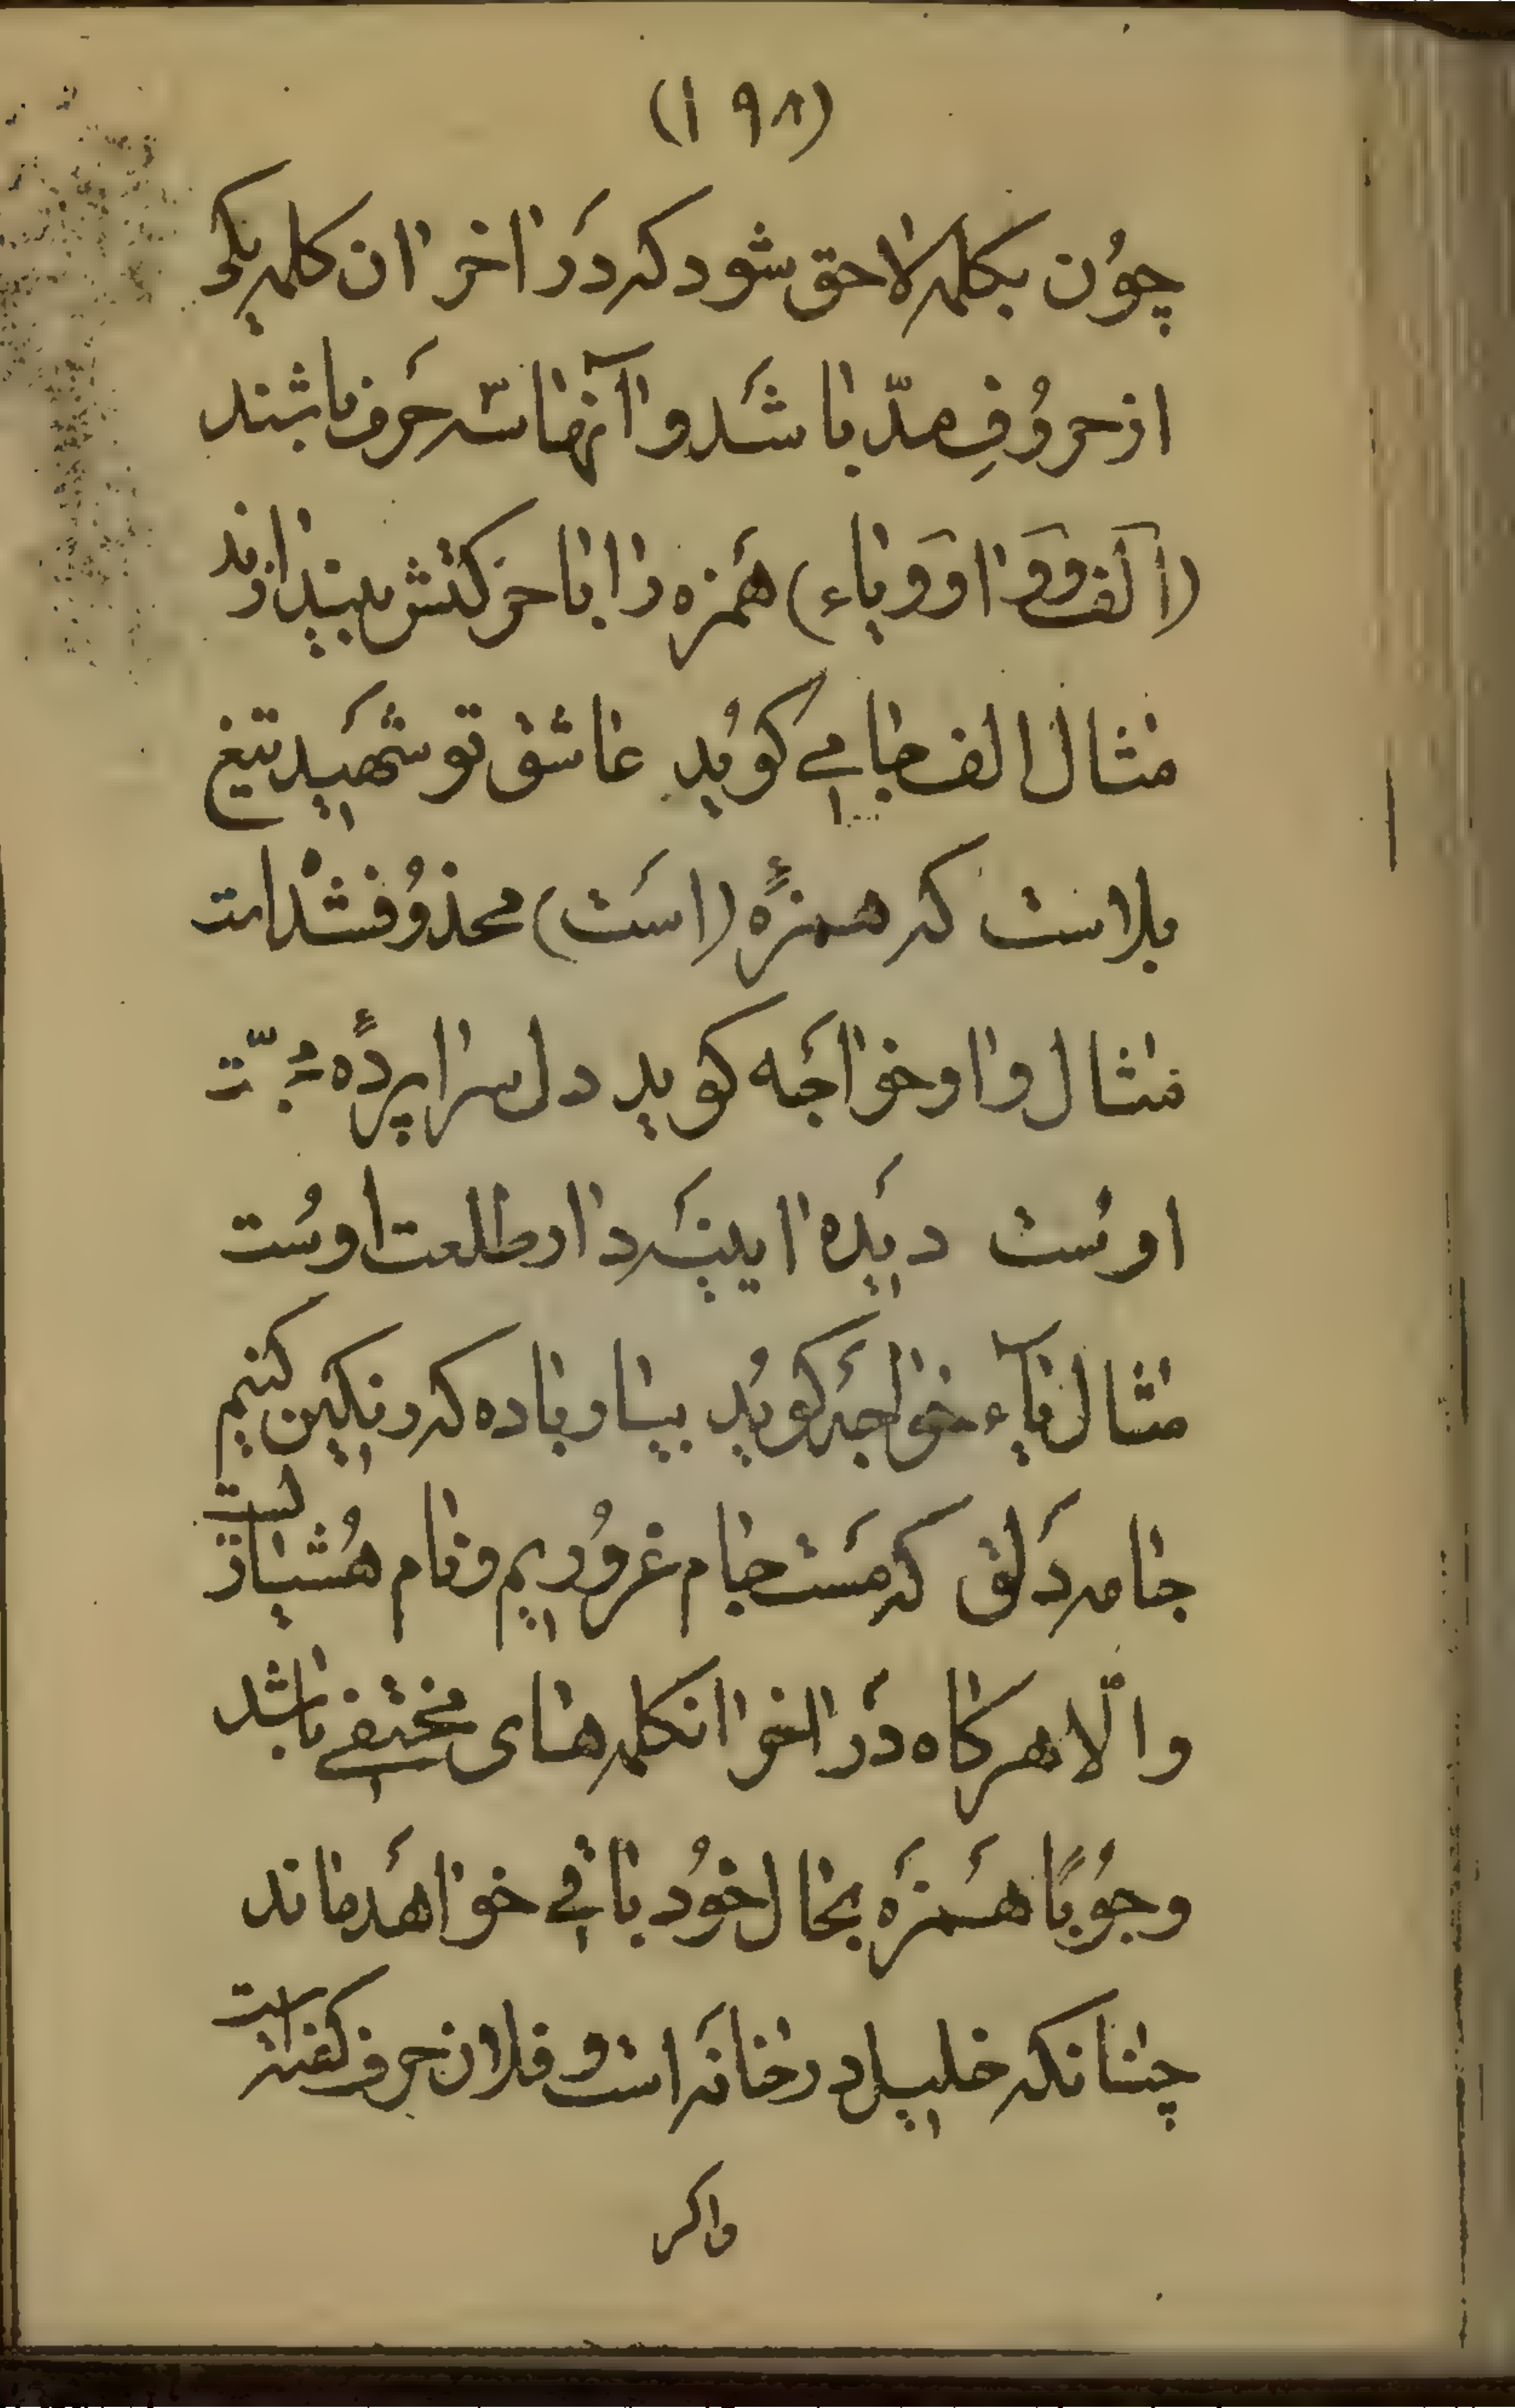 (۱۹۸)
چوُن بکلمه لاحق شود که دَر اخر ان کلمه یکی
از حروُفِ مدّ باشَد و آنها سّه حَرف باشند
(اَلف وَ وَاو وَ یاء) هَمزه را با حرکتش بیندازند
مثال الف جامی کویُد عاشق تو شَهید تیغ
بلاست که همزهٔ (اسَت) محذوُف شدْ است
مثال واو خواجَه کوید دل سراپردهٔ محبّت
اوسُت دیَده ایینَه دار طلعت اوسُت
مثال یآء خواجَه کویُد بیا و باده که رنکین کنیم
جامه دَلق که مَست جام غروُریم و نام هُشیاریست
والّا هرکاه دَر اخر انکلمه های مختفی باشد
وجوُبًا هَمزَه بحال خوُد باقی خواهَد ماند
چنانکه خلیل در خانَه است و فلان حرف کفته است
واکر